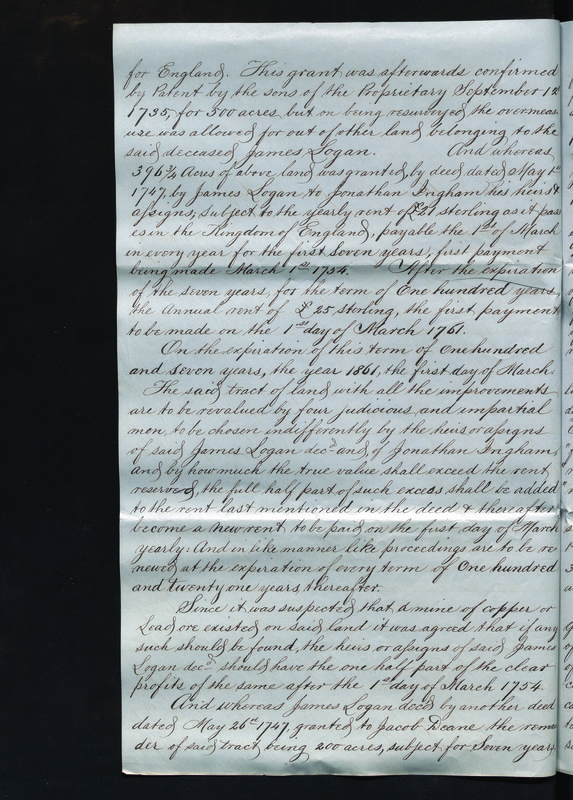 for England. This grant was afterwards confirmed
by Patent by the sons of the Proprietary September 12
1735, for 500 acres, but on being resurveyed the overmeas
ure was allowed for out of other land belonging to the
said deceased James Logan. And whereas
396 3/4 Acres of above land was granted, by deed dated May 1st
1747, by James Logan to Jonathan Ingham his heirs &
assigns; subject to the yearly rent of £21 sterling as it pass
es in the Kingdom of England, payable the 1st of March
in every year for the first Seven years, first payment
being made March 1st 1754. After the expiration
of the seven years, for the term of One hundred years
the annual rent of £25 sterling, the first payment
to be made on the 1st day of March 1761.
On the expiration of this term of One hundred
and Seven years, the year 1861, the first day of March.
The said tract of land with all the improvements
are to be revalued by four judicious and impartial
men to be chosen indifferently by the heirs or assigns
of said James Logan decd and of Jonathan Ingham,
and by how much the true value shall exceed the rent
reserved, the full half part of such excess shall be added
to the rent last mentioned in the deed & thereafter
become a new rent to be paid on the first day of March
yearly: And in like manner like proceedings are to be re
newed at the expiration of every term of One hundred
and twenty one years thereafter.
Since it was suspected that a mine of copper or
Lead ore existed on said land it was agreed that if any
such should be found, the heirs or assigns of said James
Logan decd should have the one half part of the clear
profits of the same after the 1st day of March 1754.
And whereas James Logan decd by another deed
dated May 26th 1747, granted to Jacob Deane the remn
der of said tract being 200 acres, subject for Seven years